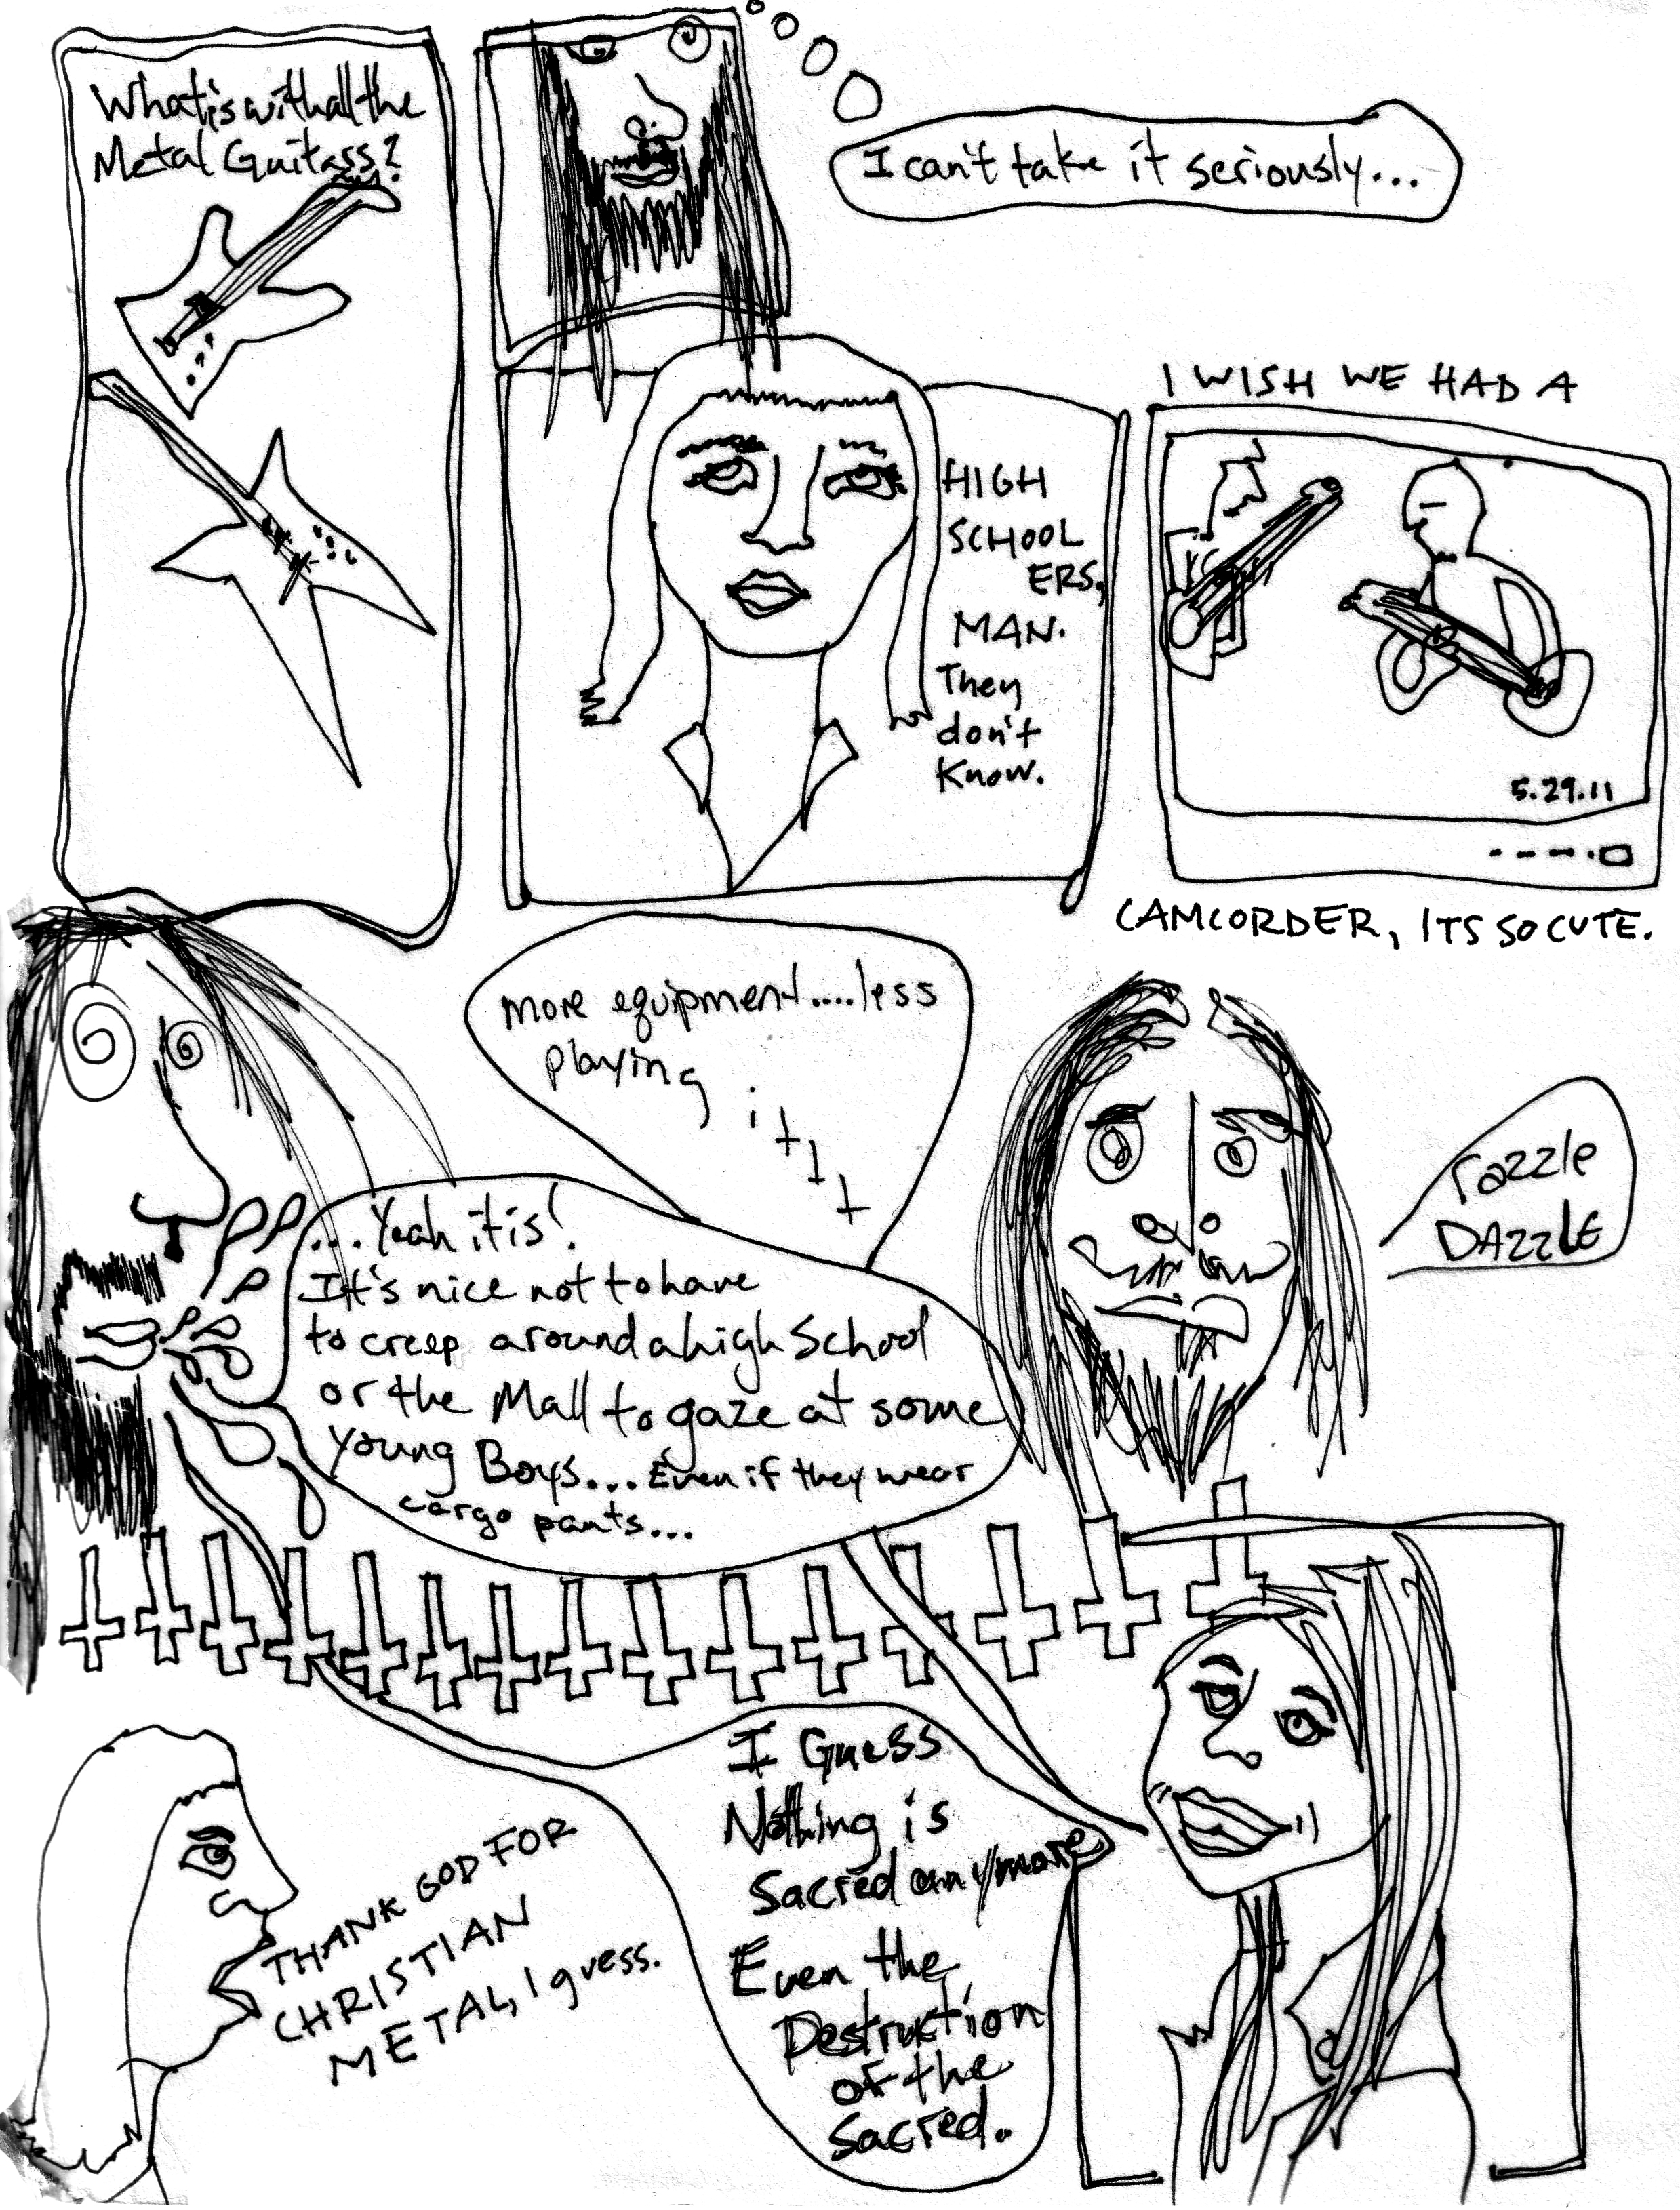 What is with all the
Metal Guitars?
I can't take it seriously...
HIGH
SCHOOL
ERS,
MAN.
They
don't
Know.
I WISH WE HAD A
5.29.11
CAMCORDER, ITS SO CUTE.
more equipment....less
playing
...Yeah it is!
It's nice not to have
to creep around a high School
or the Mall to gaze at some
young Boys... Even if they wear
cargo pants...
razzle
DAzzLE
I Guess
Nothing is
Sacred anymore
Even the
Destruction
of the
Sacred.
THANK GOD FOR
CHRISTIAN
METAL, I guess.